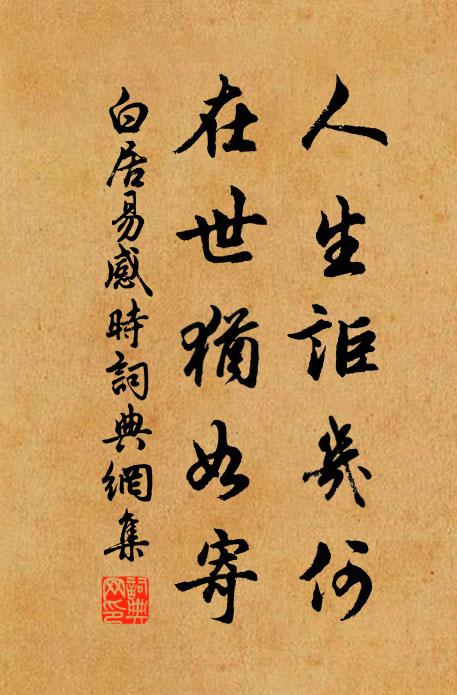 人生詎幾何
在世猶如寄
白居易感時詞典網集
詞典
網印